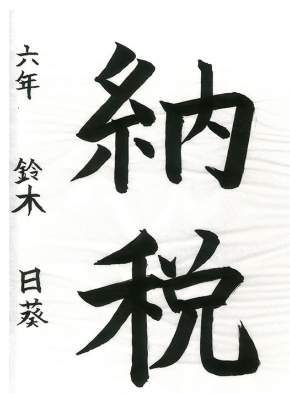 納税
六年 鈴木 日葵